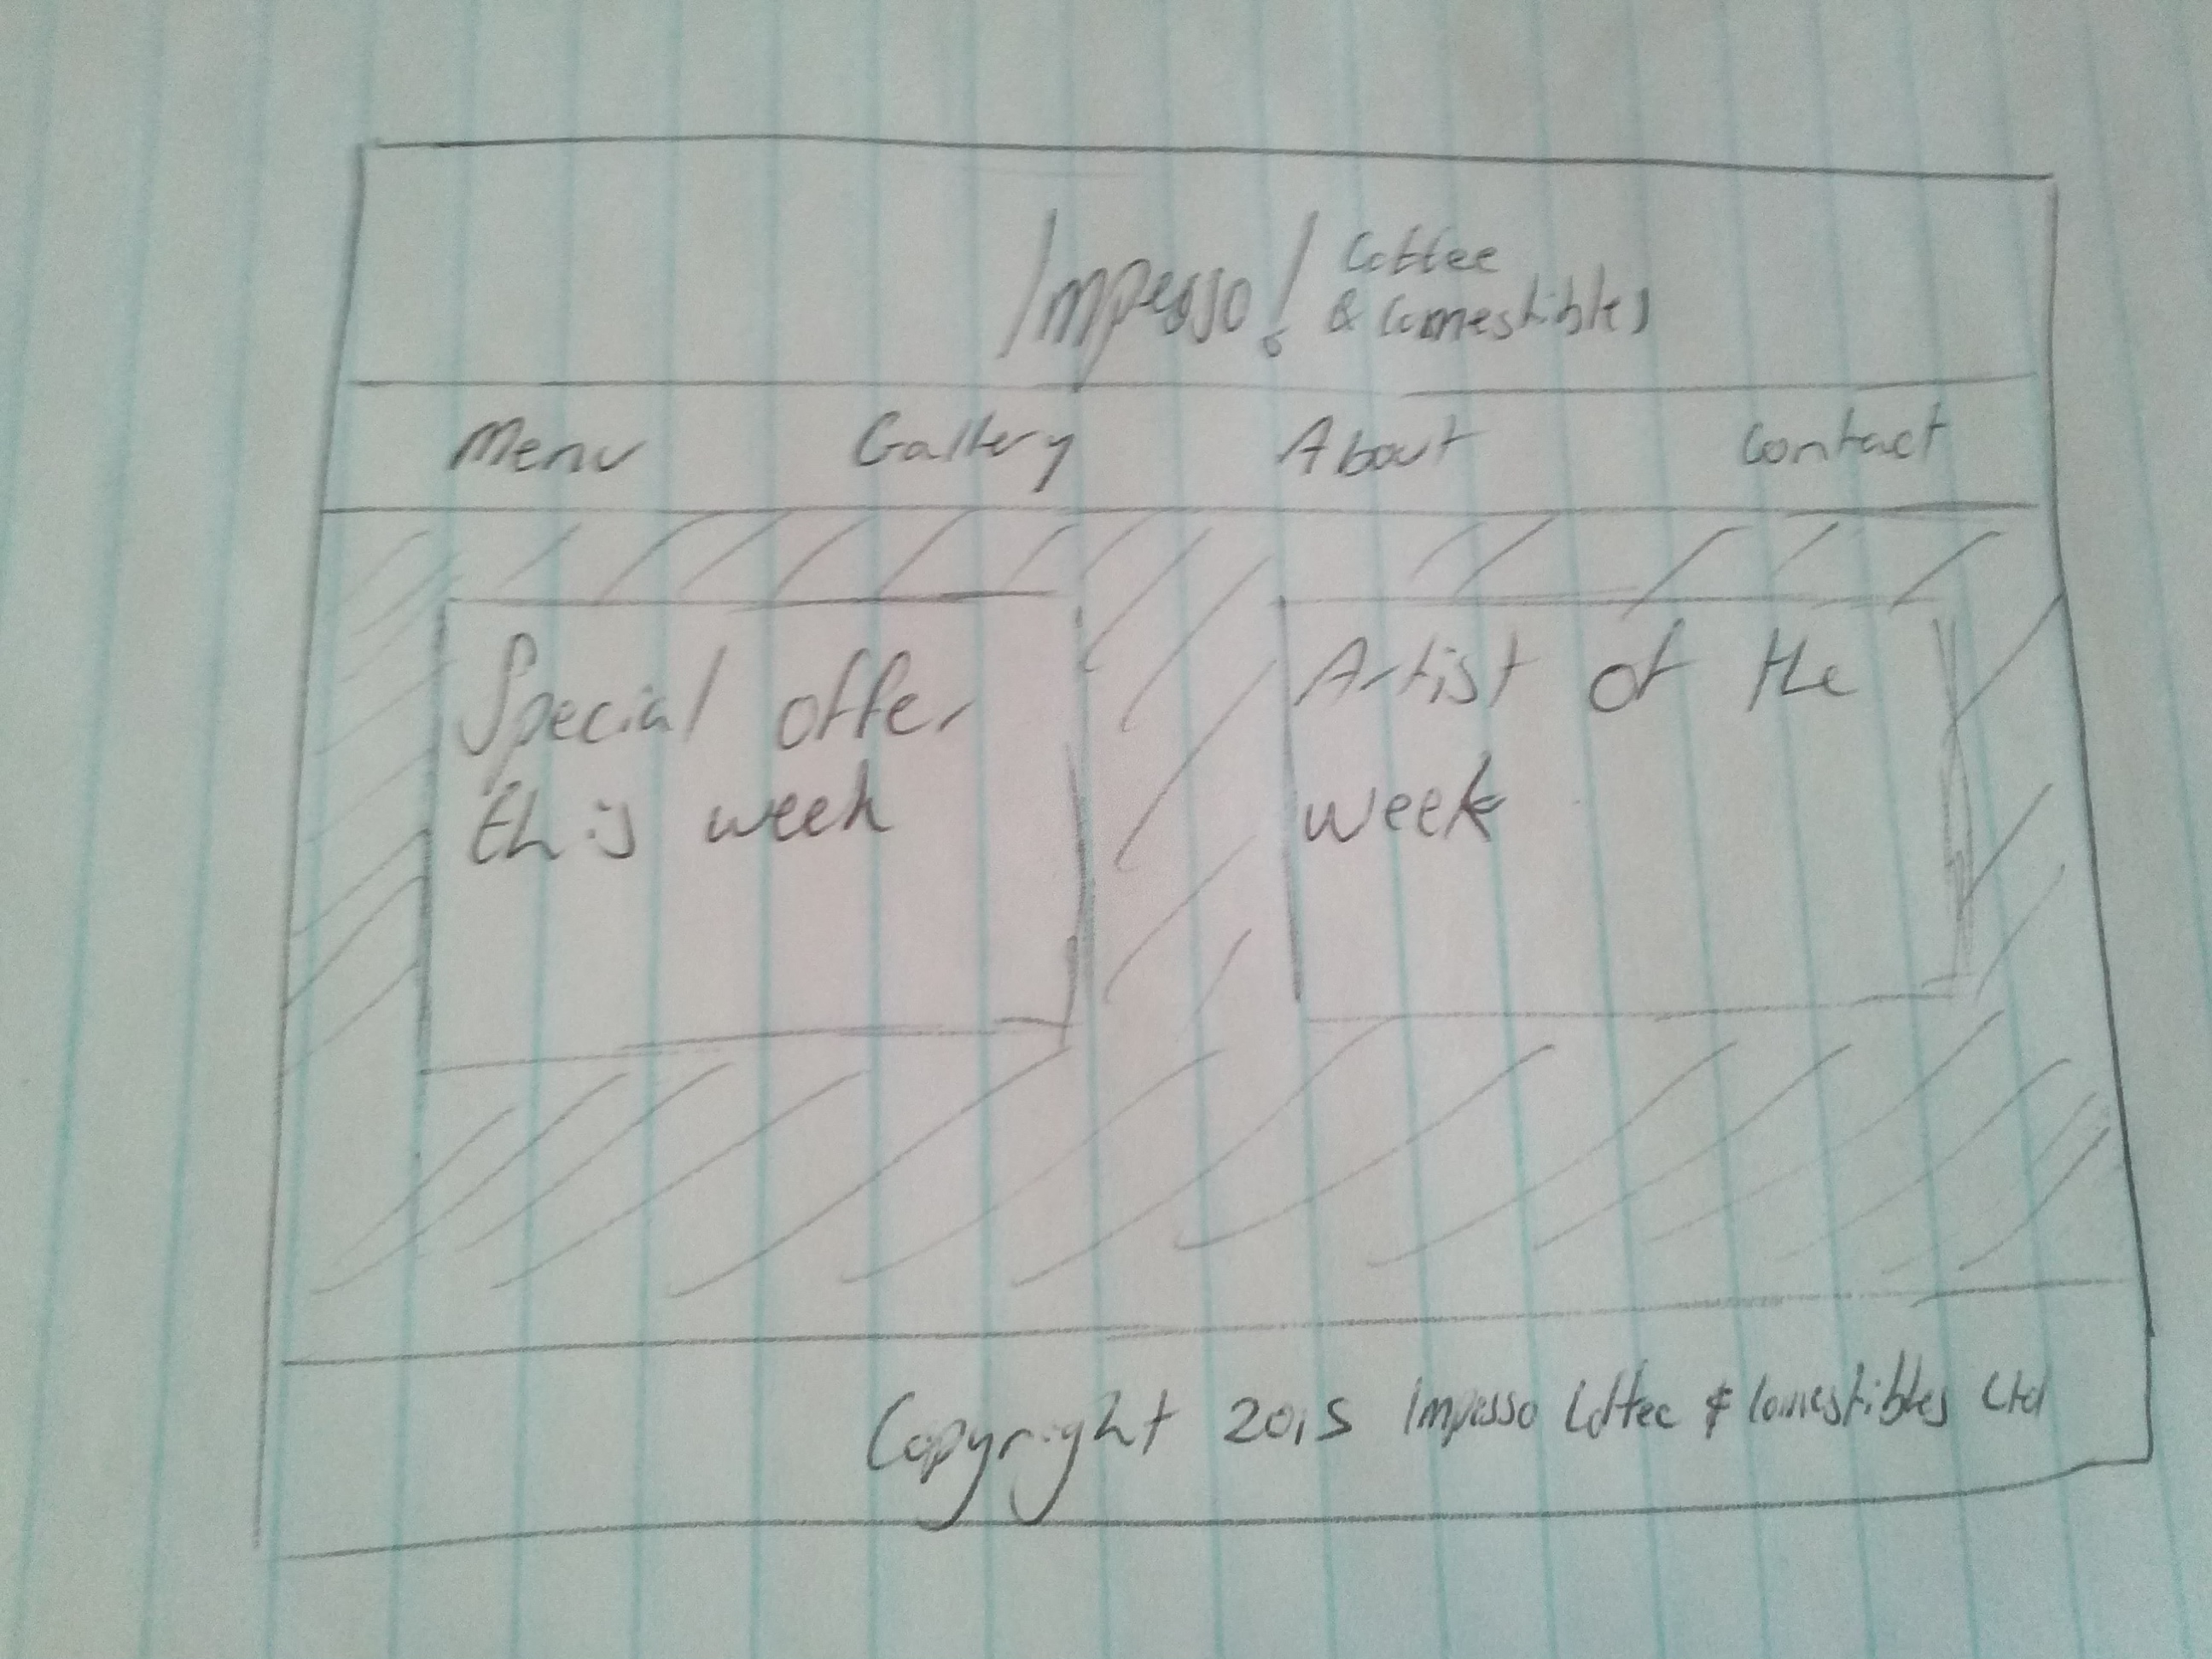 Impesso! Coffee
& Comestibles
Menu Gallery About Contact
Special offer
this week
Artist of the
week
Copyright 2015 Impesso Coffee & Comestibles Ltd